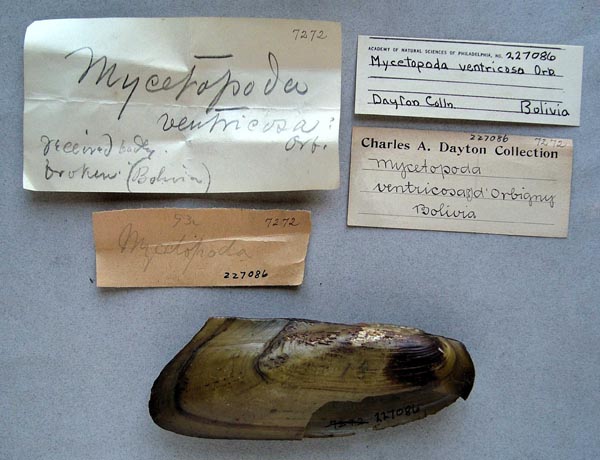 7272
Mycetopoda
ventricosa
Orb.
received badly
broken (Bolivia)
ACADEMY OF NATURAL SCIENCES OF PHILADELPHIA, NO. 227086
Mycetopoda ventricosa Orb
Dayton Colln. Bolivia
227086 7272
Charles A. Dayton Collection
Mycetopoda
ventricosa d'Orbigny
Bolivia
7272
Mycetopoda
227086
7272 227086